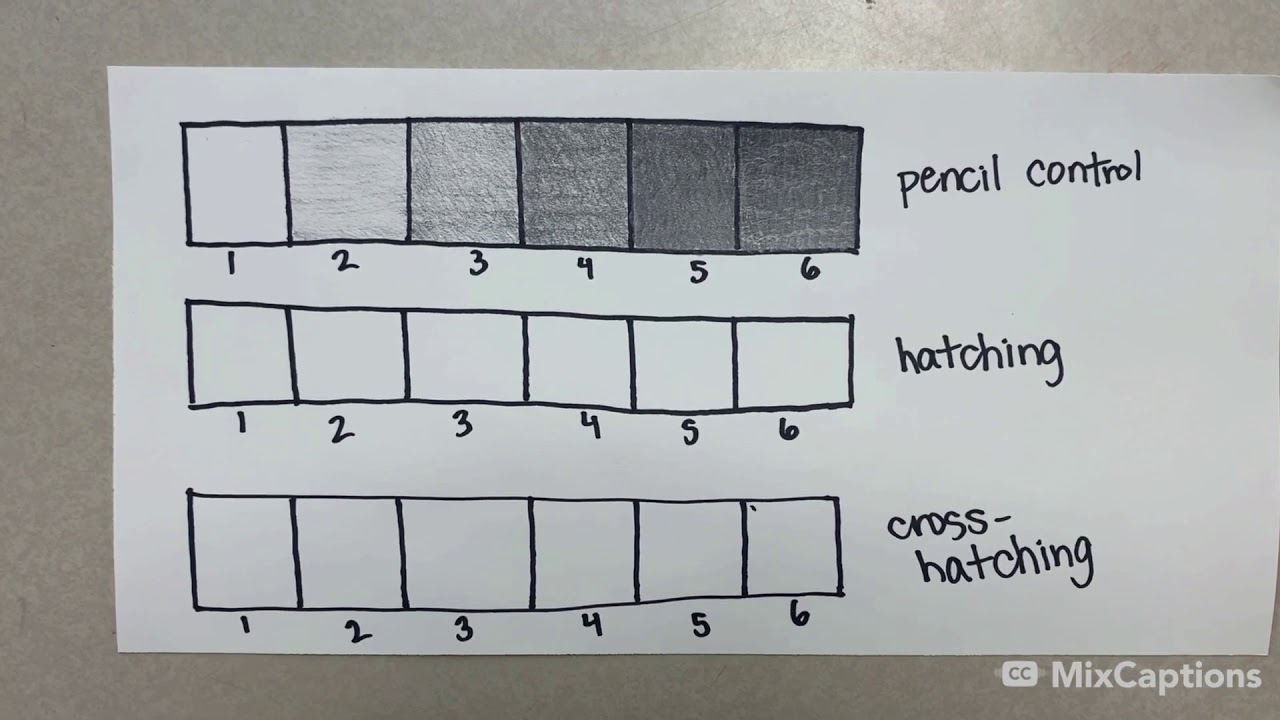 pencil control
1 2 3 4 5 6
hatching
1 2 3 4 5 6
cross-
hatching
1 2 3 4 5 6
CC MixCaptions